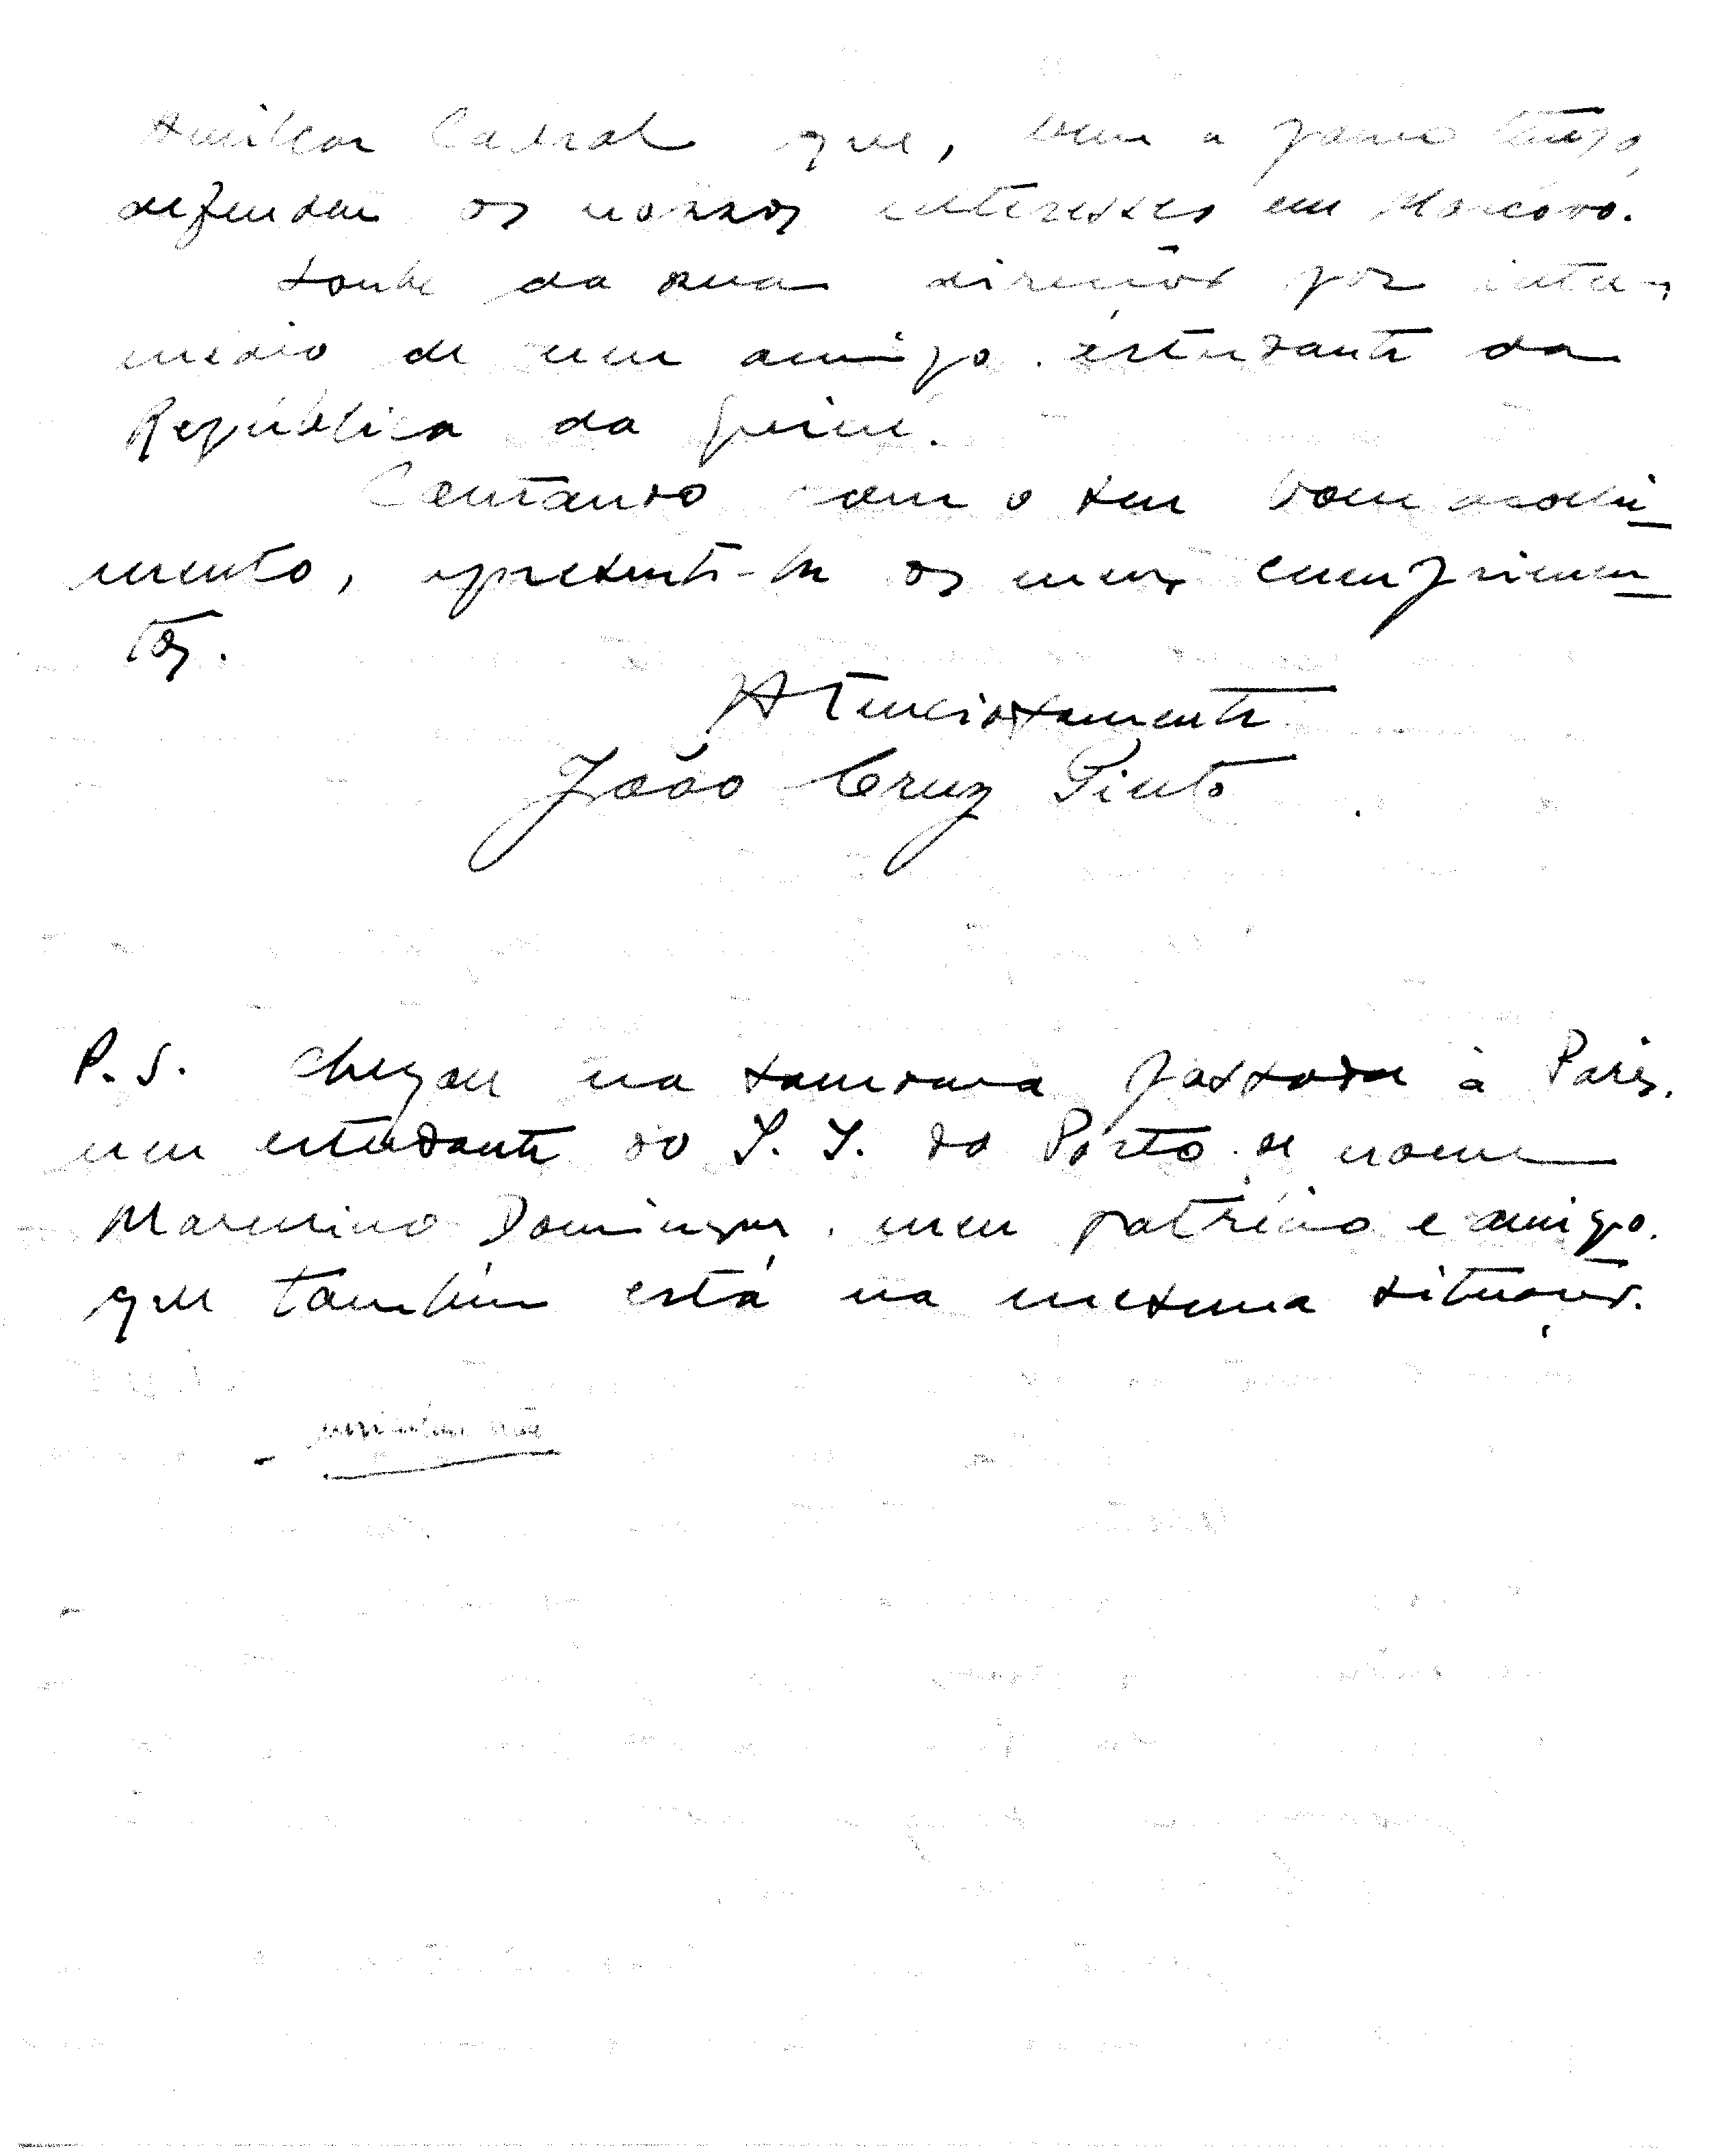 Amílcar Cabral que, bem a pouco tempo,
defendeu os nossos interesses em Moscovo.
Soube da sua direcção por inter-
médio de um amigo estudante da
República da Guiné.
Contando com o seu bom acolhi-
mento, apresento-lhe os meus cumprimen-
tos.
Atenciosamente
João Cruz Pinto
P.S. Chegou na semana passada à Paris,
um estudante do I. I. do Porto de nome
Marcelino Domingues, meu patrício e amigo
que também está na mesma situação.